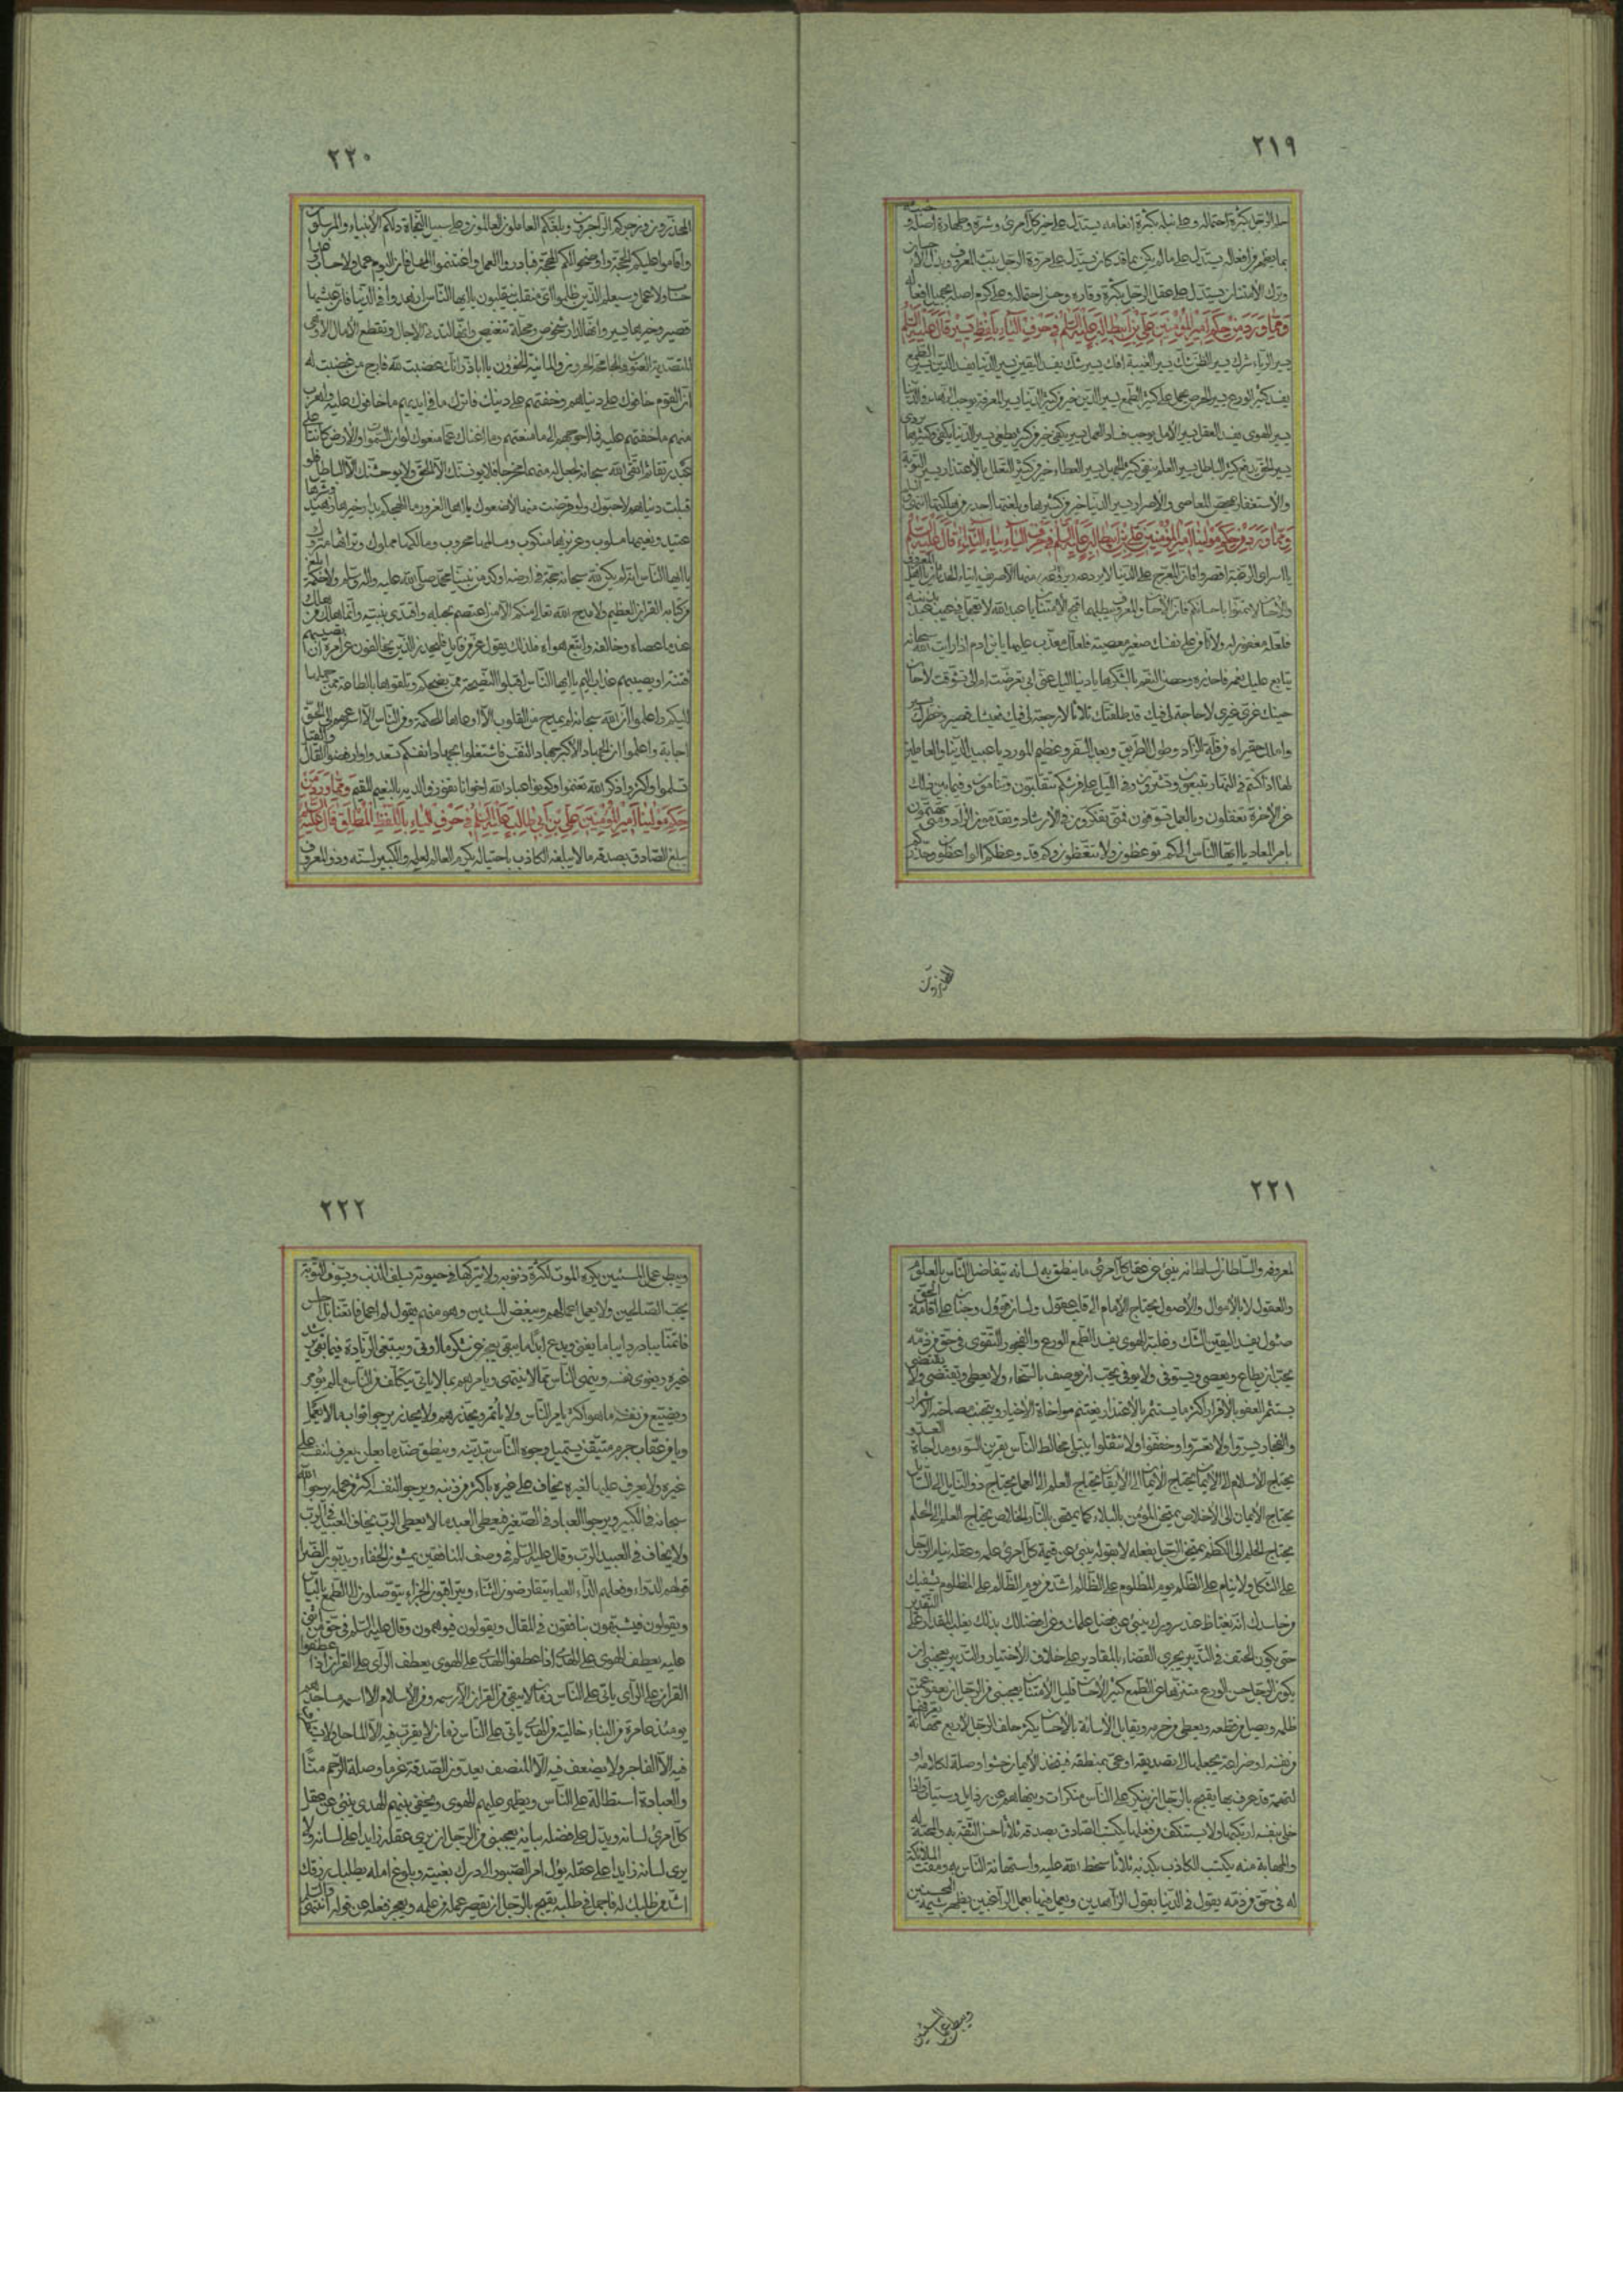 ٢١٩
حلم الرجل بكثرة احتماله وعلى نبله بكثرة انعامه يستدل على خير كل امرئ وشره وطهارة اصله و
بما يظهر من افعاله يستدل على ما لم يكن بما قد كان يستدل على مروة الرجل ببث المعروف وبذل الاحسان
وترك الامتنان يستدل على عقل الرجل بكثرة وقاره وحسن احتماله وعلى كرم اصله بجميل افعاله
وممّا ورد من حكم امير المؤمنين علي بن ابيطالب عليه السلم في حرف الياء بلفظ يسير قال عليه السلم
يسير الرياء شرك يسير الظن شك يسير الغيبة افك يسير شك يفسد اليقين يسير الدنيا يفسد الدين يسير الطمع
يفسد كثير الورع يسير الحرص يحمل على كثير الطمع يسير الدين خير من كثير الدنيا يسير المعرفة يوجب الزهد في الدنيا
يسير الهوى يفسد العقل يسير الامل يوجب فساد العمل يسير يكفي خير من كثير يطغي يسير الدنيا يكفي وكثيرها يردي
يسير الحق يدفع كثير الباطل يسير العلم ينفي كثير الجهل يسير العطاء خير من كثير التعلل بالاعتذار يسير التوبة
والاستغفار يمحص المعاصي والاصرار يسير الدنيا خير من كثيرها وبلغتها اجدر من هلكتها انتهى
وممّا ورد من حكم مولينا امير المؤمنين علي بن ابيطالب عليه السلم في حرف الياء بياء النداء قال عليه السلم
يا اسرى الرغبة اقصروا فان المعرج على الدنيا لا يردعه
والاحسان لا تمنوا باحسانكم فان الاحسان والمعروف يبطلهما قبح الامتنان يا عبد الله لا تعجل في عيب عبد بذنبه
فلعله مغفور له ولا تامن على نفسك صغير معصية فلعلك معذب عليها يا بن ادم اذا رايت الله سبحانه
يتابع عليك نعمه فاحذره وحصن النعم بالشكر لها يا دنيا اليك عني ابي تعرضت ام الي تشوقت لا حان
حينك غري غيري لا حاجة لي فيك قد طلقتك ثلاثا لا رجعة لي فيك فعيشك قصير وخطرك يسير
واملك حقير اه من قلة الزاد وطول الطريق وبعد السفر وعظيم المورد يا عبيد الدنيا والعاملين
لها اذا كنتم في النهار تبيعون وتشترون وفي الليل على فرشكم تتقلبون وتنامون وفيما بين ذلك
عن الاخرة تغفلون وبالعمل تسوفون فمتى تفكرون في الارشاد وتقدمون الزاد ومتى تهتمون
بامر المعاد يا ايها الناس الى كم توعظون ولا تتعظون وكم قد وعظكم الواعظون وحذركم
المحذرون
٢٢٠
المحذرون وزجركم الزاجرون وبلغكم العاملون العالمون وعلى سبيل النجاة دلكم الانبياء والمرسلون
واقاموا عليكم الحجة واوضحوا لكم المحجة فبادروا العمل واغتنموا المهل فان اليوم عمل ولا حساب وغدا
حساب ولا عمل وسيعلم الذين ظلموا اي منقلب ينقلبون يا ايها الناس ازهدوا في الدنيا فان عيشها
قصير وخيرها يسير وانها لدار شخوص ومحلة تنغيص وانها لتدني الاجال وتقطع الامال الا وهي
المتصدية العنون والجامحة الحرون والمانية الخؤون يا اباذر انك غضبت لله فارج من غضبت له
ان القوم خافوك على دنياهم وخفتهم على دينك فاترك ما في ايديهم ما خافوك عليه واهرب
منهم ما خفتهم عليه فما احوجهم الى ما منعتهم وما اغناك عما منعوك لو ان السموات والارض كانتا على
عبد رتقا ثم اتقى الله سبحانه لجعل له منهما مخرجا فلا يؤنسنك الا الحق ولا يوحشنك الا الباطل فلو
قبلت دنياهم لاحبوك ولو قرضت منها لامنوك يا اهل الغرور ما الهجكم بدار خيرها زهيد وشرها
عتيد ونعيمها مسلوب وعزيزها منكوب ومسالمها محروب ومالكها مملوك وتراثها متروك
يا ايها الناس انه لم يكن لله سبحانه حجة في ارضه اوكد من نبينا محمد صلى الله عليه واله وسلم ولا حكمة ابلغ
من كتابه القران العظيم ولا مدح الله تعالى منكم الا من اعتصم بحبله واقتدى بنبيه وانما هلك من هلك
عند ما عصاه وخالفه واتبع هواه فلذلك يقول عز من قائل فليحذر الذين يخالفون عن امره ان تصيبهم
فتنة او يصيبهم عذاب اليم يا ايها الناس اقبلوا النصيحة ممن نصحكم وتلقوها بالطاعة ممن حملها
اليكم واعلموا ان الله سبحانه لم يمدح من القلوب الا اوعاها للحكمة ومن الناس الا اسرعهم الى الحق
اجابة واعلموا ان الجهاد الاكبر جهاد النفس فاشتغلوا بجهاد انفسكم تسعدوا وارفضوا القال والقيل
تسلموا واكثروا ذكر الله تغنموا وكونوا عباد الله اخوانا تفوزوا لديه بالنعيم المقيم وممّا ورد من
حكم مولينا امير المؤمنين علي بن ابي طالب عليه السلم في حرف الياء باللفظ المطلق قال عليه السلم
يبلغ الصادق بصدقه ما لا يبلغه الكاذب باحتياله يكرم العالم لعلمه والكبير لسنه وذو المعروف
٢٢١
لمعروفه والسلطان لسلطانه ينبئ عن عقل كل امرئ ما ينطق به لسانه يتفاضل الناس بالعلوم
والعقول لا بالاموال والاصول يحتاج الامام الى قلب عقول ولسان قوول وجنان على اقامة الحق
صئول يفسد اليقين الشك وغلبة الهوى يفسد الطمع الورع والفجور التقوى في حق من ذمه
يحب ان يطاع ويعصي ويستوفي ولا يوفي يحب ان يوصف بالسخاء ولا يعطي ويقتضي ولا يقتضى
يستثمر العفو بالاقرار اكثر ما يستثمر بالاعتذار يغتنم مواخاة الاخيار ويتجنب مصاحبة الاشرار
والفجار يسروا ولا تعسروا وخففوا ولا تثقلوا يبتلى مخالط الناس بقرين السوء ومداجاة العدو
يحتاج الاسلام الى الايمان يحتاج الايمان الى الايقان يحتاج العلم الى العمل يحتاج ذو النايل الى السايل
يحتاج الايمان الى الاخلاص يمتحن المؤمن بالبلاء كما يمتحن بالنار الخلاص يحتاج العلم الى الحلم
يحتاج الحلم الى الكظم يمتحن الرجل بفعله لا بقوله ينبئ عن قيمة كل امرئ علمه وعقله ينام الرجل
على الثكل ولا ينام على الظلم يوم المظلوم على الظالم اشد من يوم الظالم على المظلوم يشفيك
من حاسدك انه يغتاظ عند سرورك ينبئ عن فضلك علمك وعن افضالك بذلك يغلب المقدار على التقدير
حتى يكون الحتف في التدبير يجري القضاء بالمقادير على خلاف الاختيار والتدبير يعجبني ان
يكون الرجل حسن الورع متنزها عن الطمع كثير الاحسان قليل الامتنان يعجبني من الرجل ان يعفو عمن
ظلمه ويصل من قطعه ويعطي من حرمه ويقابل الاساءة بالاحسان يكثر حلف الرجل لاربع مهانة يعرفها
من نفسه او ضراعة يجعلها سبيلا الى تصديقه او عي بمنطقه فيتخذ الايمان حشوا وصلة لكلامه او
لتهمة قد عرف بها يقبح بالرجل ان ينكر على الناس منكرات وينهاهم عن رذايل وسيئات واذا
خلى بنفسه ارتكبها ولا يستنكف من فعلها يكتسب الصادق بصدقه ثلاثا حسن الثقة به والمحبة له
والمهابة منه يكتسب الكاذب بكذبه ثلاثا سخط الله عليه واستهانة الناس به ومقت الملائكة
له في حق من ذمه يقول في الدنيا بقول الزاهدين ويعمل فيها بعمل الراغبين يظهر شيمة المحسنين
ويبطن عمل المسيئين
٢٢٢
ويبطن عمل المسيئين يكره الموت لكثرة ذنوبه ولا يتركها في حيوته يسلف الذنب ويسوف بالتوبة
يحب الصالحين ولا يعمل اعمالهم ويبغض المسيئين وهو منهم يقول لم اعمل فاتعنا بل اجلس
فاتمنا يبادر دايبا ما يفنى ويدع ابدا ما يبقى يعجز عن شكر ما اوتي ويبتغي الزيادة فيما بقي يرشد
غيره ويغوي نفسه وينهى الناس بما لا ينتهي ويامرهم بما لا ياتي يتكلف من الناس ما لم يؤمر
ويضيع من نفسه ما هو اكثر يامر الناس ولا ياتمر ويحذرهم ولا يحذر يرجو ثواب ما لا يعمل
ويامن عقاب جرم متيقن يستميل وجوه الناس بتدينه ويبطن ضد ما يعلن يعرف لنفسه على
غيره ولا يعرف عليها لغيره يخاف على غيره باكثر من ذنبه ويرجو لنفسه اكثر من عمله يرجو الله
سبحانه في الكبير ويرجو العباد في الصغير فيعطي العبد ما لا يعطي الرب يخاف العبيد في الرب
ولا يخاف في العبيد الرب وقال عليه السلم في وصف المنافقين يمشون الخفاء ويدبون الضراء
قولهم الدواء وفعلهم الداء العياء يتقارضون الثناء ويتراقبون الجزاء يتوصلون الى الطمع بالياس
ويقولون فيشبهون ينافقون في المقال ويقولون فيوهمون وقال عليه السلم في حق من اثنى
عليه يعطف الهوى على الهدى اذا عطفوا الهدى على الهوى يعطف الراى على القران اذا عطفوا
القران على الراى ياتي على الناس زمان لا يبقى من القران الا رسمه ومن الاسلام الا اسمه مساجدهم
يومئذ عامرة من البناء خالية من الهدى ياتي على الناس زمان لا يقرب فيه الا الماحل ولا يستظرف
فيه الا الفاجر ولا يضعف فيه الا المنصف يعدون الصدقة غرما وصلة الرحم منّا
والعبادة استطالة على الناس ويظهر عليهم الهوى ويخفى بينهم الهدى ينبئ عن عقل
كل امرئ لسانه ويدل على فضله بيانه يعجبني من الرجل ان يرى عقله زايدا على لسانه ولا
يرى لسانه زايدا على عقله يؤل امر الصبور الى درك بغيته وبلوغ امله يطلبك رزقك
اشد من طلبك له فاجمل في طلبه يقبح بالرجل ان يقصر عمله عن علمه ويعجز فعله عن قوله انتهى